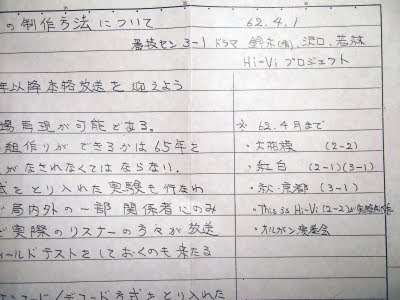 の制作方法について
62.4.1
番技セン 3-1 ドラマ 鈴木(情),沢口,若林
Hi-Vi プロジェクト
年以降本格放送を迎えよう
場再現が可能である。
組作りができるかは65年を
がなされなくてはならない.
式をとり入れた実験も行なわ
局内外の一部関係者にのみ
実際のリスナーの方々が放送
ィールドテストをしておくのも来たる
コード/デコード方式をとり入れた
※ 62.4月まで
・大相撲 (2-2)
・紅白 (2-1)(3-1)
・秋・京都 (3-1)
・This is Hi-Vi (2-2)
・オルガン演奏会